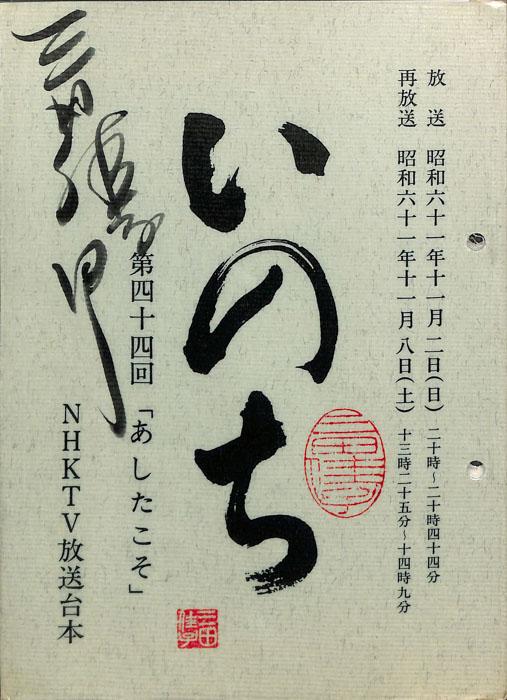 放送 昭和六十一年十一月二日(日) 二十時～二十時四十四分
再放送 昭和六十一年十一月八日(土) 十三時二十五分～十四時九分
いのち
第四十四回「あしたこそ」
NHKTV放送台本
三田佳子